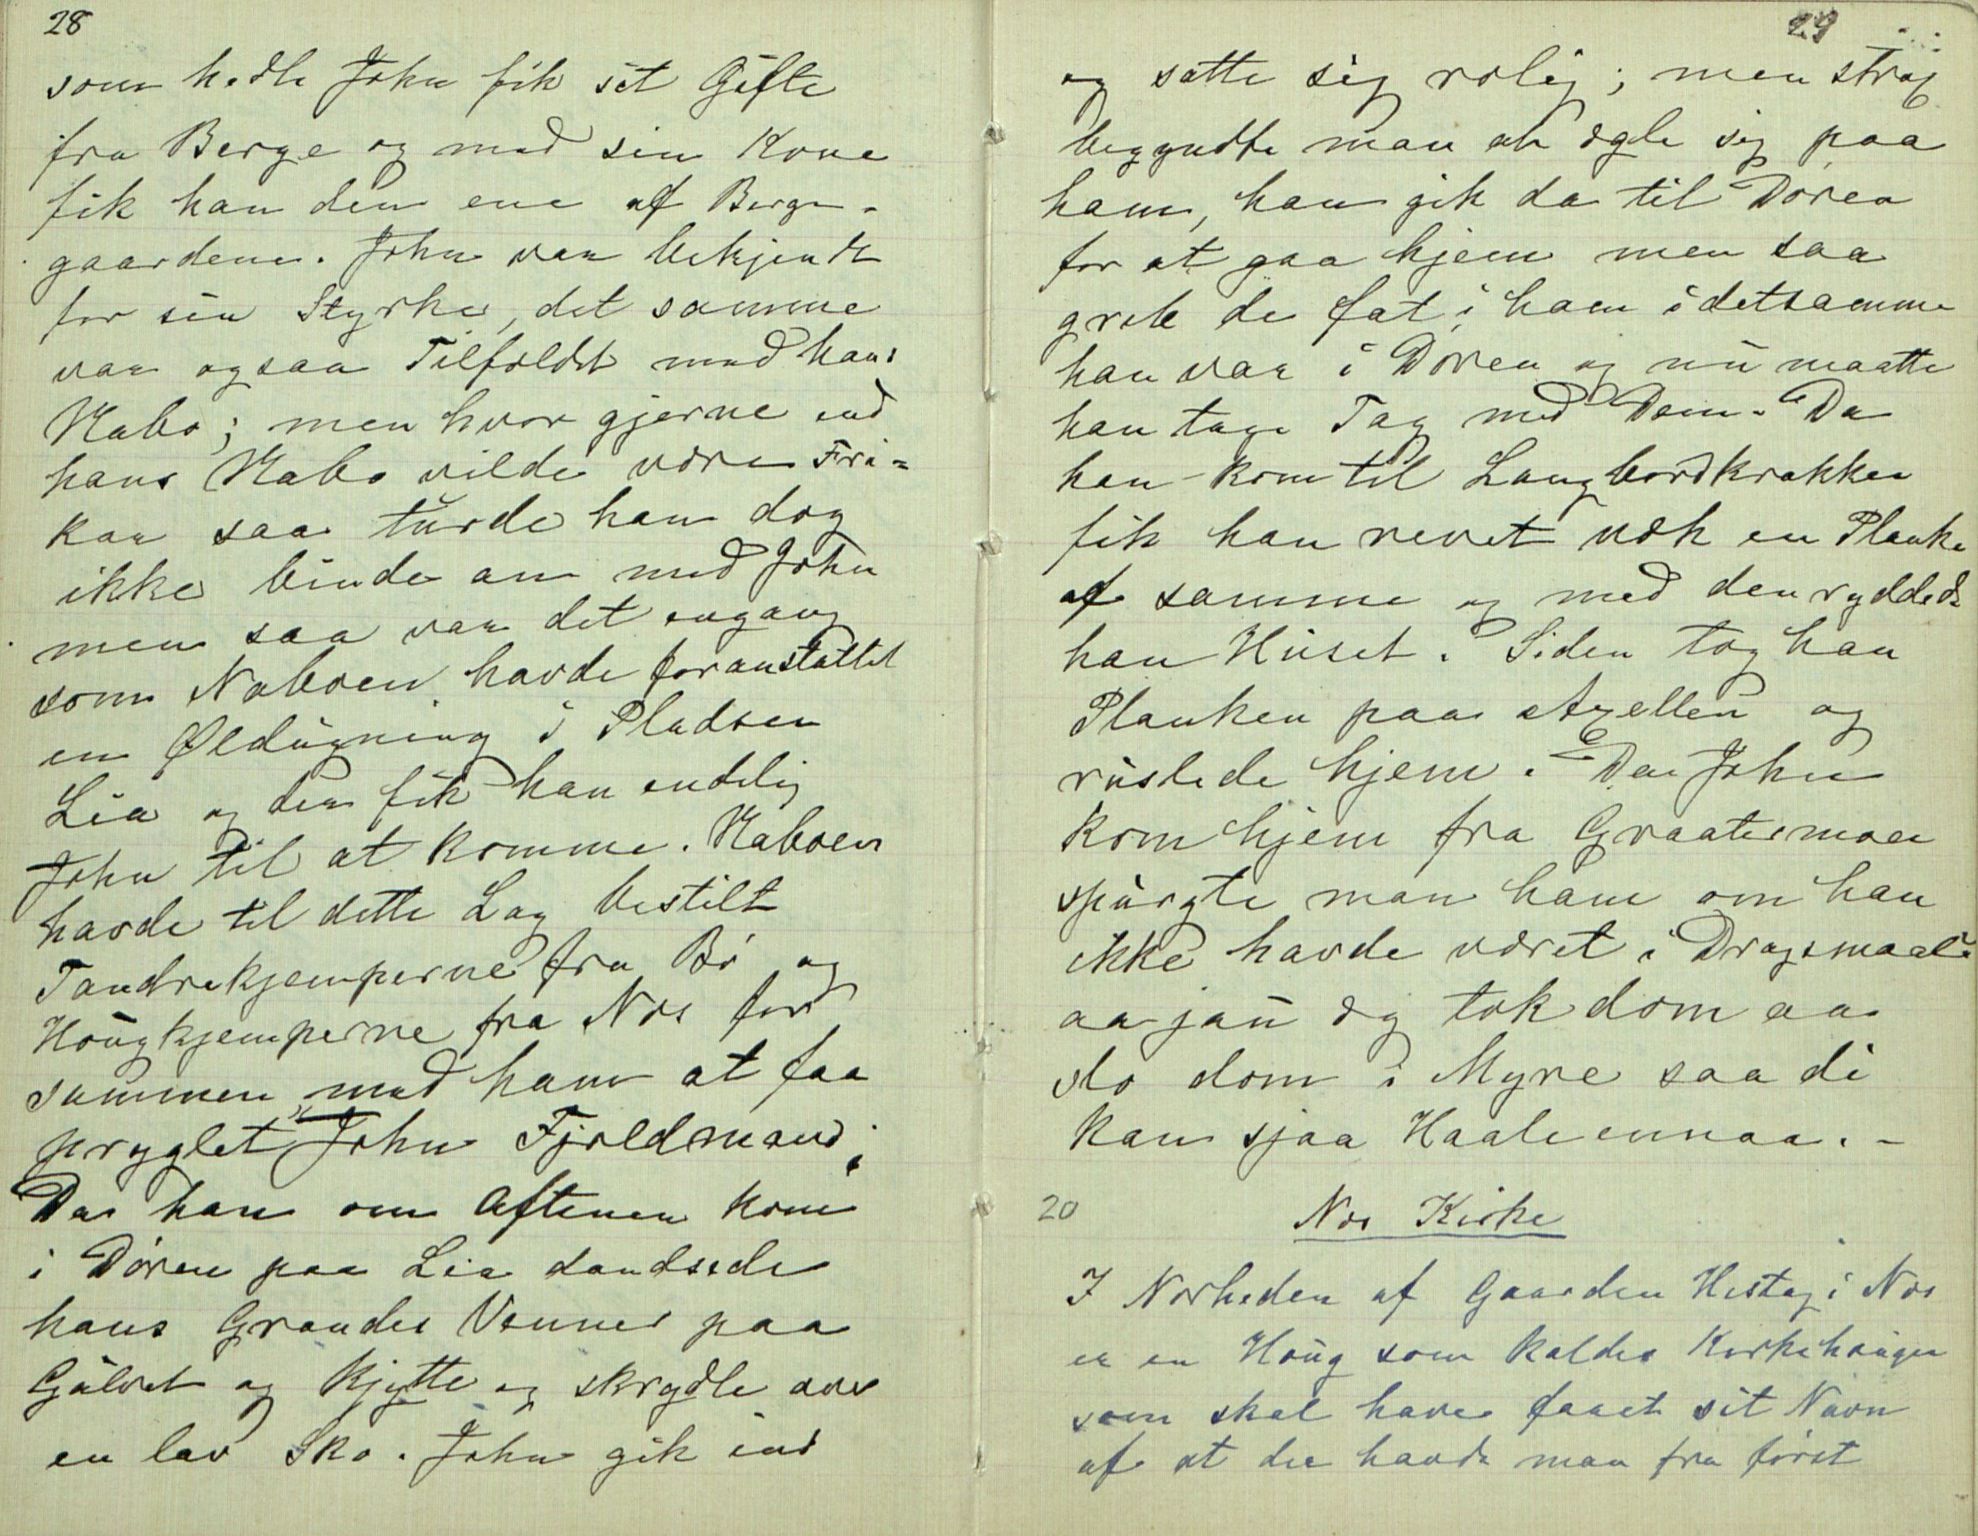 28
som hedte John fik sit Gifte
fra Berge og med sin Kone
fik han den ene af Berge-
gaardene. John var bekjendt
for sin Styrke, det samme
var ogsaa Tilfældet med hans
Nabo; men hvor gjerne end
hans Nabo vilde være Fri=
kar saa turde han dog
ikke binde an med John
men saa var det engang
som Naboen havde foranstaltet
en Øldugning i Pladsen
Lia og der fik han endelig
John til at komme. Naboen
havde til dette Lag bestilt
Tandrekjemperne fra Bø og
Hougkjemperne fra Nes for
sammen med ham at faa
pryglet John Fjeldmand;
Da han om Aftenen kom
i Døren paa Lia dandsede
hans Grandes Venner paa
Gulvet og kjytte og skrydle over
en lav Sko. John gik ind
29
og satte sig rolig; men strax
begyndte man at ægle sig paa
ham, han gik da til Døren
for at gaa hjem men saa
greb de fat i ham idetsamme
han var i Døren og nu maatte
han tage Tag med Dem. Da
han kom til Langbordkrakken
fik han revet væk en Planke
af samme og med den ryddede
han Huset. Siden tog han
Planken paa Axellen og
ruslede hjem. Da John
kom hjem fra Graatesmoen
spurgte man ham om han
ikke havde været i Dragsmaal:
aa jau eg tok dom aa
slo dom i Myre saa di
kan sjaa Haale ennaa. -
20
Nes Kirke
I Nærheden af Gaarden Hesteg i Nes
er en Houg som kaldes Kirkehougen
som skal have faaet sit Navn
af at der havde man fra først